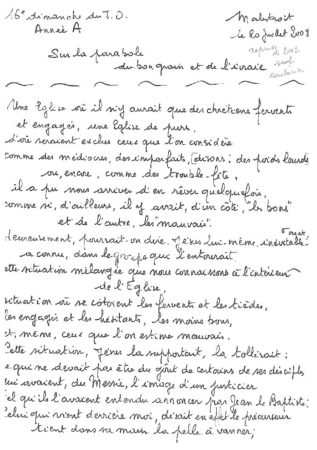 16e dimanche du T.O.
Année A
Malestroit
le 20 juillet 2008
reprise de 2002
sauf
conclusion
Sur la parabole
du bon grain et de l'ivraie
Une Eglise où il n'y aurait que des chrétiens fervents
et engagés, une Eglise de purs.
d'où seraient exclus ceux que l'on considère
comme des médiocres, des imparfaits, disons : des poids lourds
ou, encore, comme des trouble-fête,
il a pu nous arriver d'en rêver quelquefois,
comme si, d'ailleurs, il y avait, d'un côté, "les bons"
et de l'autre, les "mauvais".
Heureusement, pourrait-on dire. Jésus lui-même inévitable-
ment
a connu, dans le groupe qui l'entourait
cette situation mélangée que nous connaissons à l'intérieur
de l'Eglise,
situation où se côtoient les fervents et les tièdes,
les engagés et les hésitants, les moins bons,
et, même, ceux que l'on estime mauvais.
Cette situation, Jésus la supportait, la tolérait :
ce qui ne devait pas être du goût de certains de ses disciples
qui avaient, du Messie, l'image d'un justicier
tel qu'ils l'avaient entendu annoncer par Jean le Baptiste:
"Celui qui vient derrière moi, disait en effet le précurseur
tient dans sa main la pelle à vanner;